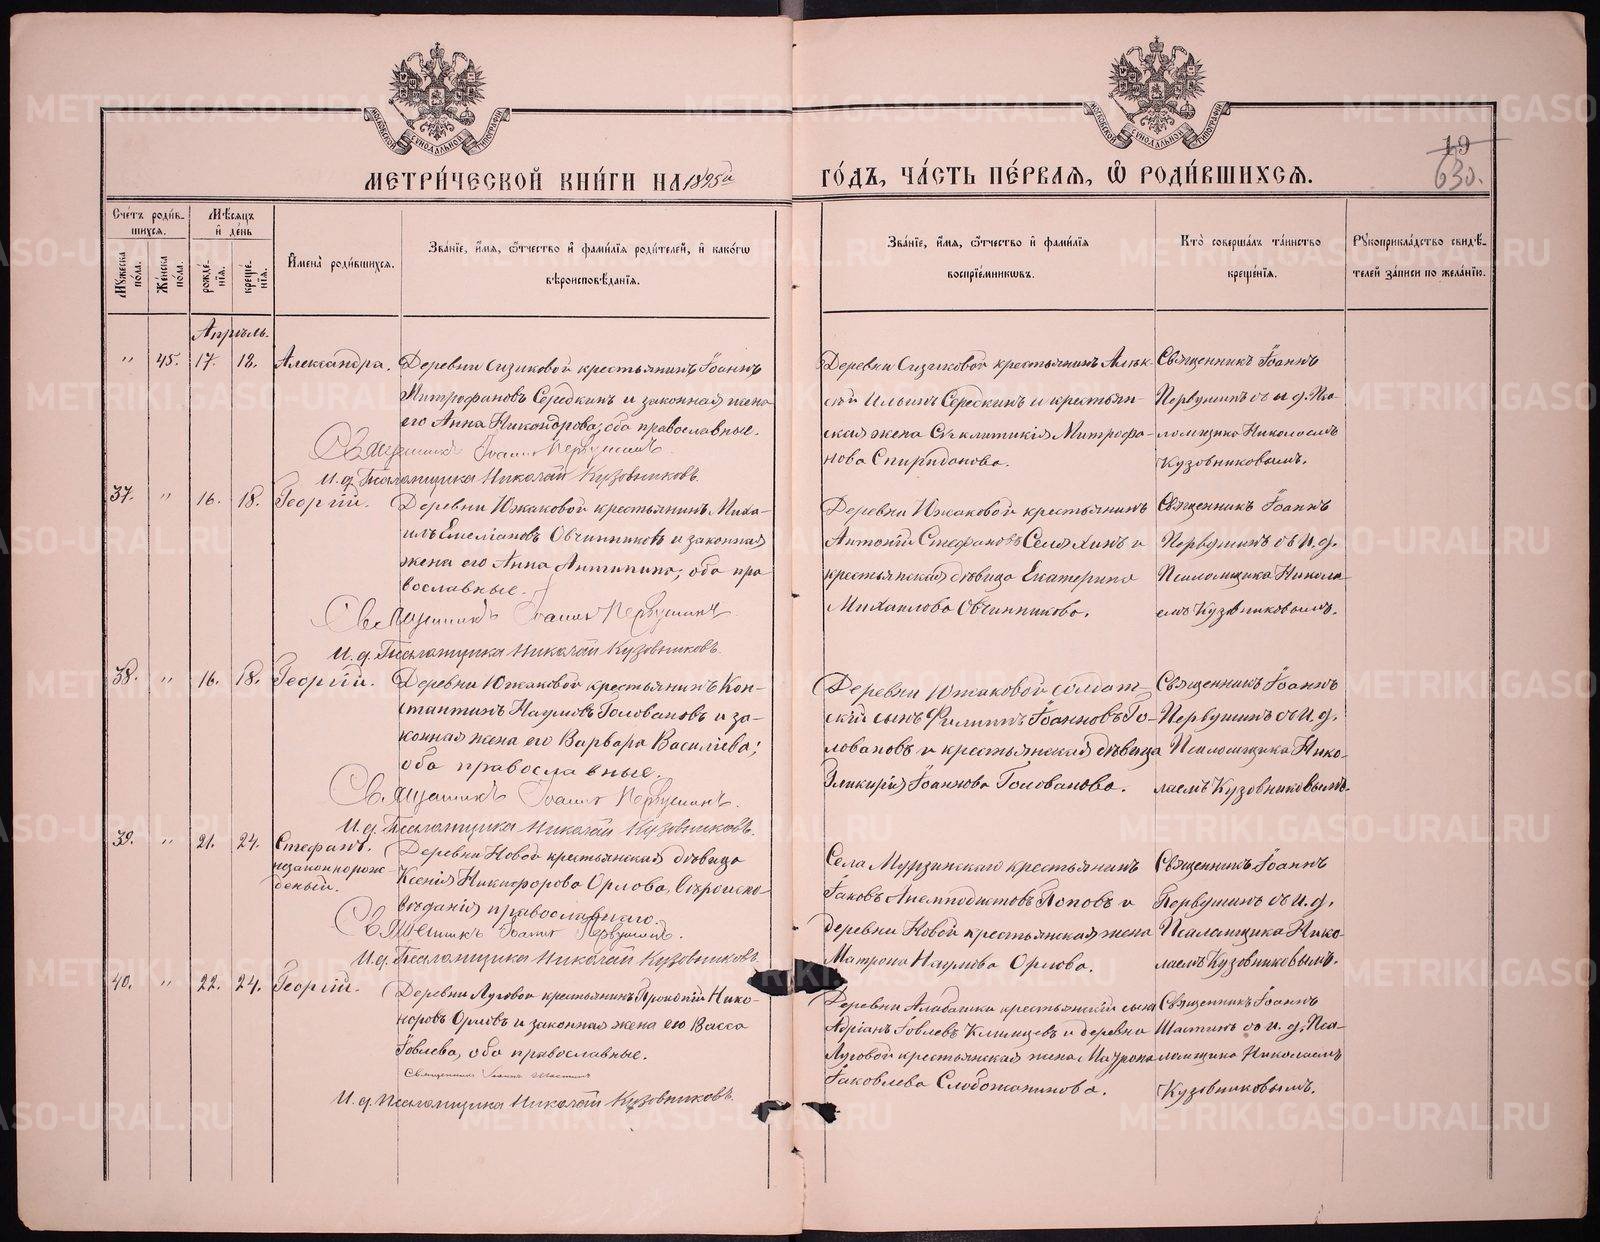 МОСКОВСКОЙ СѴНОДАЛЬНОЙ ТИПОГРАФІИ
МОСКОВСКОЙ СѴНОДАЛЬНОЙ ТИПОГРАФІИ
19
630.
МЕТРИ́ЧЕСКОЙ КНИ́ГИ НА 1895й
ГО́ДЪ, ЧА́СТЬ ПЕ́РВАЯ, Ѿ РОДИ́ВШИХСЯ.
Сче́тъ роди́в-
шихся.
Мужеска пола.
Женска пола.
Мѣсяцъ
и҆ де́нь
рожде-
нїя.
креще-
нїя.
И҆мена̀ роди́вшихся.
Зва́нїе, и҆́мя, ѻ҆́тчество и҆ фами́лїя роди́телей, и҆ како́гѡ
вѣроисповѣ́данїя.
Зва́нїе, и҆́мя, ѻ҆́тчество и҆ фами́лїя
воспрїе́мникѡвъ.
Кто̀ соверша́лъ та́инство
креще́нїя.
Рꙋкоприкла́дство свидѣ́-
телей за́писи по жела́нїю.
Апрѣль.
" 45. 17. 18. Александра.
Деревни Сизиковой крестьянинъ Іоаннъ
Митрофановъ Середкинъ и законная жена
его Анна Никандрова; оба православные.
Священникъ Іоаннъ Первушинъ.
И. д. Псаломщика Николай Кузовниковъ.
Деревни Сизиковой крестьянинъ Алек-
сѣй Ильинъ Середкинъ и крестьян-
ская жена Синклитикія Митрофа-
нова Спиридонова.
Священникъ Іоаннъ
Первушинъ съ и. д. Пса-
ломщика Николаемъ
Кузовниковымъ.
37. " 16. 18. Георгій.
Деревни Южаковой крестьянинъ Миха-
илъ Емеліановъ Овчинниковъ и законная
жена его Анна Антипина; оба пра-
вославные.
Священникъ Іоаннъ Первушинъ
И. д. Псаломщика Николай Кузовниковъ.
Деревни Южаковой крестьянинъ
Антоній Стефановъ Селяхинъ и
крестьянская дѣвица Екатерина
Михаилова Овчинникова.
Священникъ Іоаннъ
Первушинъ съ И. д.
Псаломщика Никола-
емъ Кузовниковымъ.
38. " 16. 18. Георгій.
Деревни Южаковой крестьянинъ Кон-
стантинъ Наумовъ Головановъ и за-
конная жена его Варвара Василіева;
оба православные.
Священникъ Іоаннъ Первушинъ.
И. д. Псаломщика Николай Кузовниковъ.
Деревни Южаковой солдат-
скій сынъ Филиппъ Іоанновъ Го-
ловановъ и крестьянская дѣвица
Гликерія Іоаннова Голованова.
Священникъ Іоаннъ
Первушинъ съ И. д.
Псаломщика Нико-
лаемъ Кузовниковымъ.
39. " 21. 24. Стефанъ.
незаконнорож-
денный.
Деревни Новой крестьянская дѣвица
Ксенія Никифорова Орлова, вѣроиспо-
вѣданія православнаго.
Священникъ Іоаннъ Первушинъ.
И. д. Псаломщика Николай Кузовниковъ.
Села Мурзинскаго крестьянинъ
Іаковъ Анемподистовъ Поповъ и
деревни Новой крестьянская жена
Матрона Наумова Орлова.
Священникъ Іоаннъ
Первушинъ съ И. д.
Псаломщика Нико-
лаемъ Кузовниковымъ.
40. " 22. 24. Георгій.
Деревни Луговой крестьянинъ Прокопій Нико-
норовъ Орловъ и законная жена его Васса
Іовлева, оба православные.
Священникъ Іоаннъ Шастинъ
И. д. Псаломщика Николай Кузовниковъ.
Деревни Алабашка крестьянскій сынъ
Адріанъ Іовлевъ Климцевъ и деревни
Луговой крестьянская жена Матрона
Іаковлева Слобожанинова.
Священникъ Іоаннъ
Шастинъ съ и. д. Пса-
ломщика Николаемъ
Кузовниковымъ.
METRIKI.GASO-URAL.RU